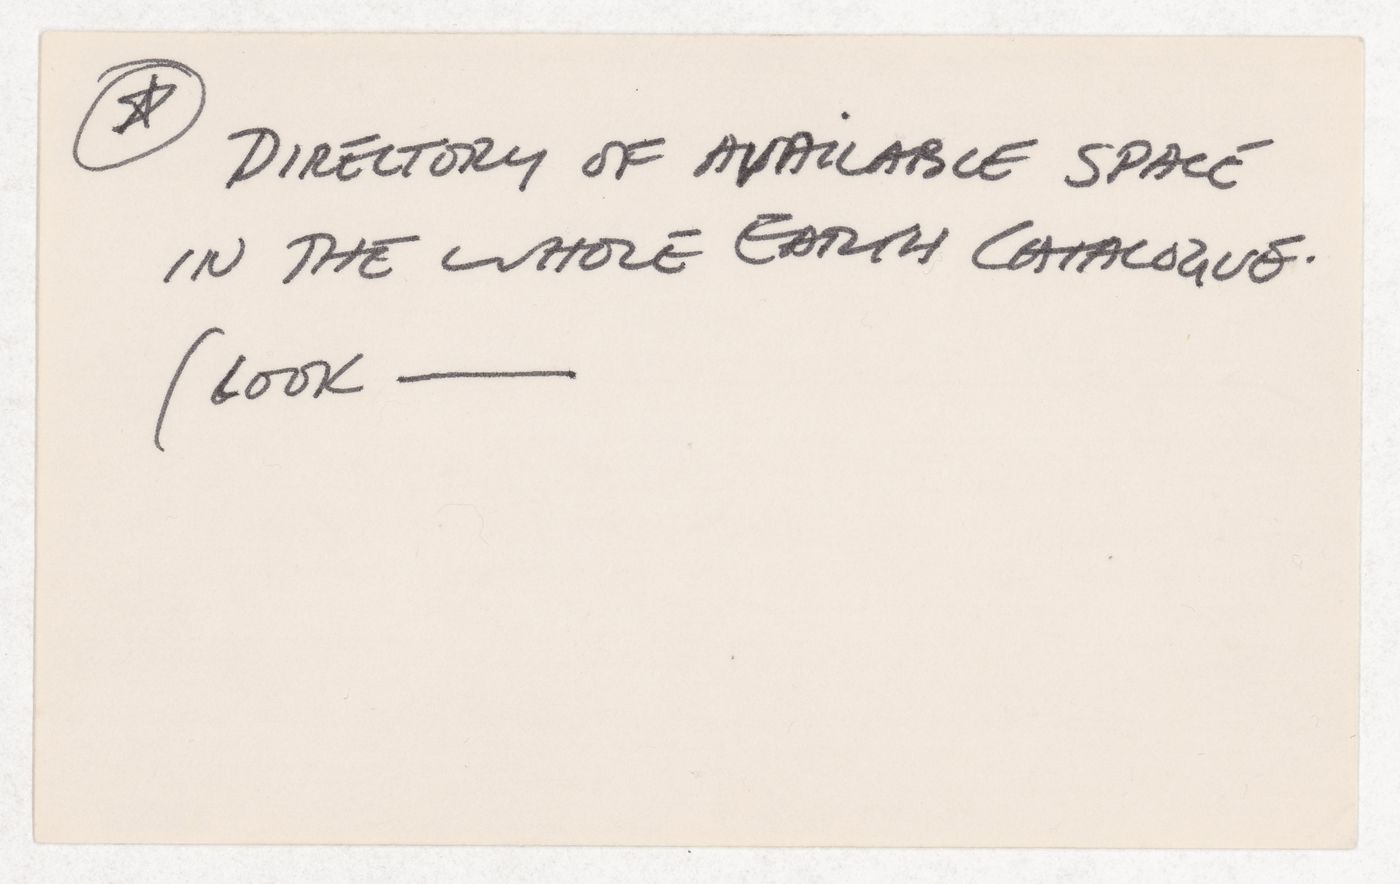 DIRECTORY OF AVAILABLE SPACE
IN THE WHOLE EARTH CATALOGUE.
(LOOK ———